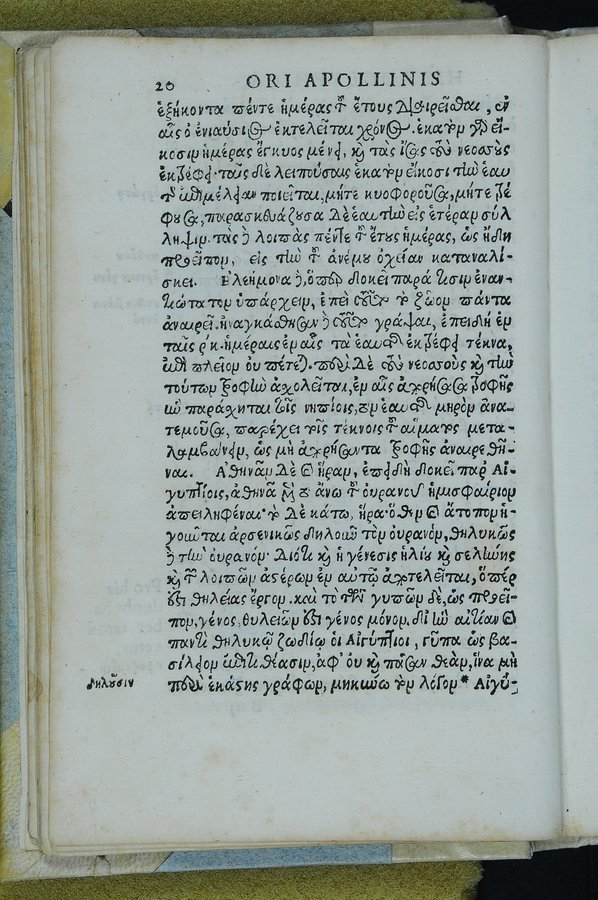 20 ORI APOLLINIS
ἑξήκοντα πέντε ἡμέρας τοῦ ἔτους διαιρεῖσθαι, ἐν
αἷς ὁ ἐνιαύσιος ἐκτελεῖται χρόνος. ἑκατὸν γὰρ εἴ-
κοσιν ἡμέρας ἔγκυος μένει, καὶ τὰς ἴσας τοὺς νεοσσοὺς
ἐκτρέφει· ταῖς δὲ λειπούσαις ἑκατὸν εἴκοσι τὴν ἑαυ
τοῦ ἐπιμέλειαν ποιεῖται, μήτε κυοφοροῦσα, μήτε τρέ-
φουσα, παρασκευάζουσα δὲ ἑαυτὴν εἰς ἑτέραν σύλ
ληψιν. τὰς δὲ λοιπὰς πέντε τοῦ ἔτους ἡμέρας, ὡς ἤδη
προεῖπον, εἰς τὴν τοῦ ἀνέμου ὀχείαν καταναλί-
σκει. Ἐλεήμονα δὲ, ὅπερ δοκεῖ παρά τισιν ἐναν-
τιώτατον ὑπάρχειν, ἐπεὶ τοῦτο τὸ ζῶον πάντα
ἀναιρεῖ. ἠναγκάσθησαν δὲ τοῦτο γράψαι, ἐπειδὴ ἐν
ταῖς ρκ. ἡμέραις ἐν αἷς τὰ ἑαυτοῦ ἐκτρέφει τέκνα,
ἐπὶ πλεῖον οὐ πέτεται. περὶ δὲ τοὺς νεοσσοὺς καὶ τὴν
τούτων τροφὴν ἀσχολεῖται, ἐν αἷς ἀπορήσασα τροφῆς
ἣν παράσχηται τοῖς νηπίοις, τὸν ἑαυτοῦ μηρὸν ἀνα-
τεμοῦσα, παρέχει τοῖς τέκνοις τοῦ αἵματος μετα-
λαμβάνειν, ὡς μὴ ἀπορήσαντα τροφῆς ἀναιρεθῆ-
ναι. Ἀθηνᾶν δὲ καὶ ἥραν, ἐπειδὴ δοκεῖ παρ' Αἰ-
γυπτίοις, ἀθηνᾶ μὲν τὸ ἄνω τοῦ οὐρανοῦ ἡμισφαίριον
ἀπειληφέναι· τὸ δὲ κάτω, ἥρα· ὅθεν καὶ ἄτοπον ἡ-
γοῦνται ἀρσενικῶς δηλοῦν τὸν οὐρανόν, θηλυκῶς
δὲ τὴν οὐρανόν· διότι καὶ ἡ γένεσις ἡλίου καὶ σελήνης
καὶ τῶν λοιπῶν ἀστέρων ἐν αὐτῷ ἀποτελεῖται, ὅπέρ
ἐστι θηλείας ἔργον. καὶ τὸ τῶν γυπῶν δὲ, ὡς προεῖ-
πον, γένος, θυλειῶν ἐστι γένος μόνον, δι' ἣν αἰτίαν καὶ
παντὶ θηλυκῷ ζωδίῳ οἱ Αἰγύπτιοι, γῦπα ὡς βα-
σίλειον ἐπιτιθέασιν, ἀφ' οὗ καὶ πᾶσαν θεὰν, ἵνα μὴ
περὶ ἑκάστης γράφων, μηκύνω τὸν λόγον * Αἰγύ-
δηλοῦσιν